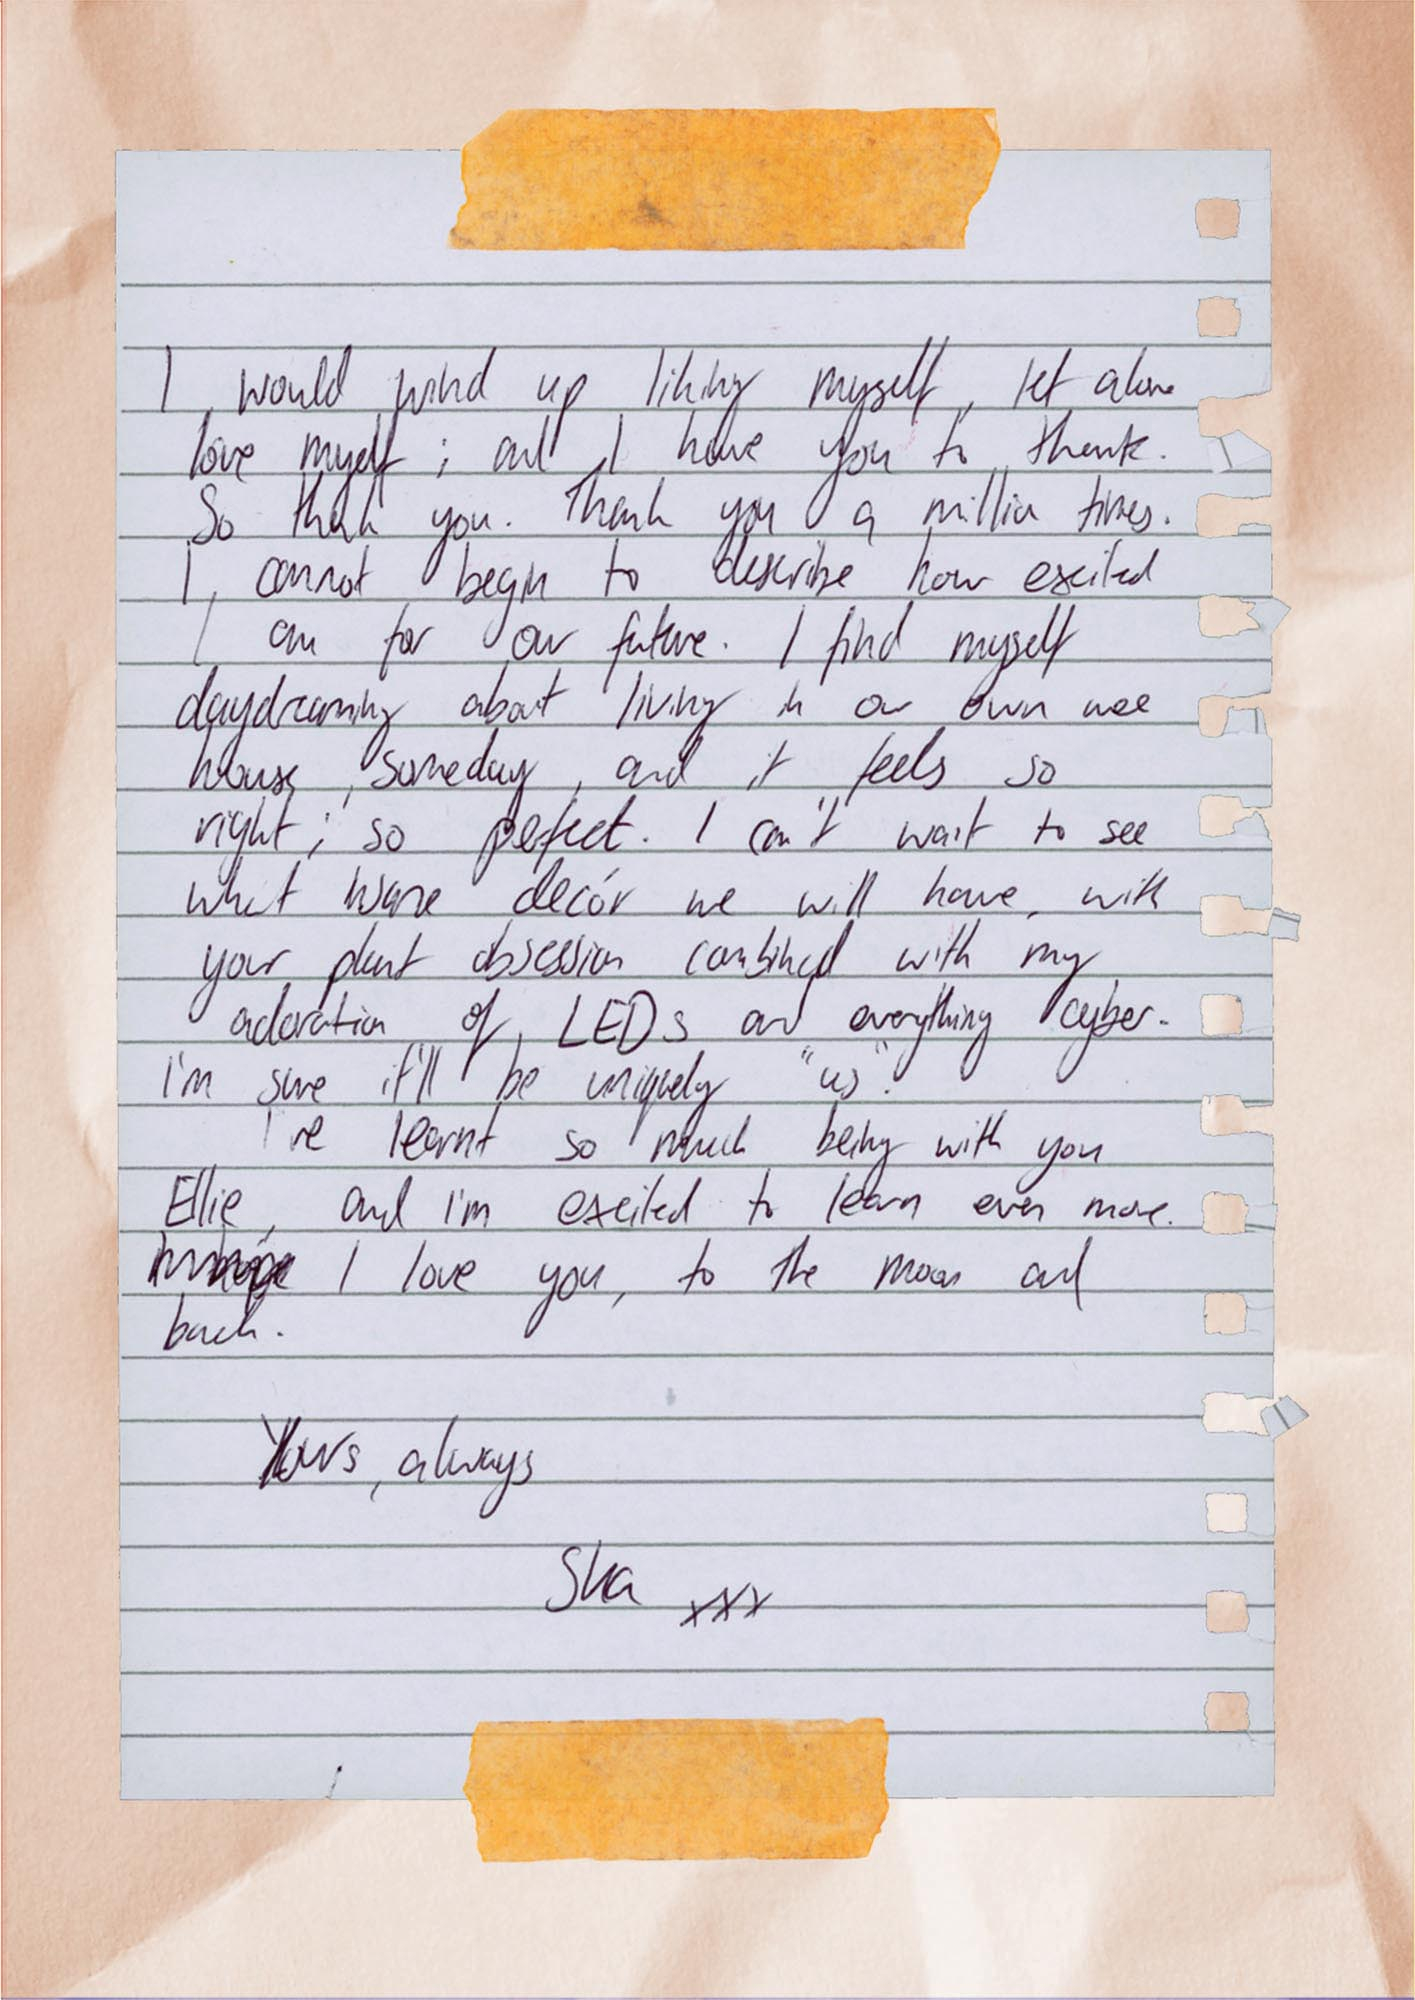 I would wind up liking myself, let alone
love myself; and I have you to thank.
So thank you. Thank you a million times.
I cannot begin to describe how excited
I am for our future. I find myself
daydreaming about living in our own wee
house, someday, and it feels so
right; so perfect. I can't wait to see
what insane decór we will have, with
your plant obsession combined with my
adoration of LEDs and everything cyber.
I'm sure it'll be uniquely "us".
I've learnt so much being with you
Ellie, and I'm excited to learn even more.
I love you, to the moon and
back.
Yours, always
xxx